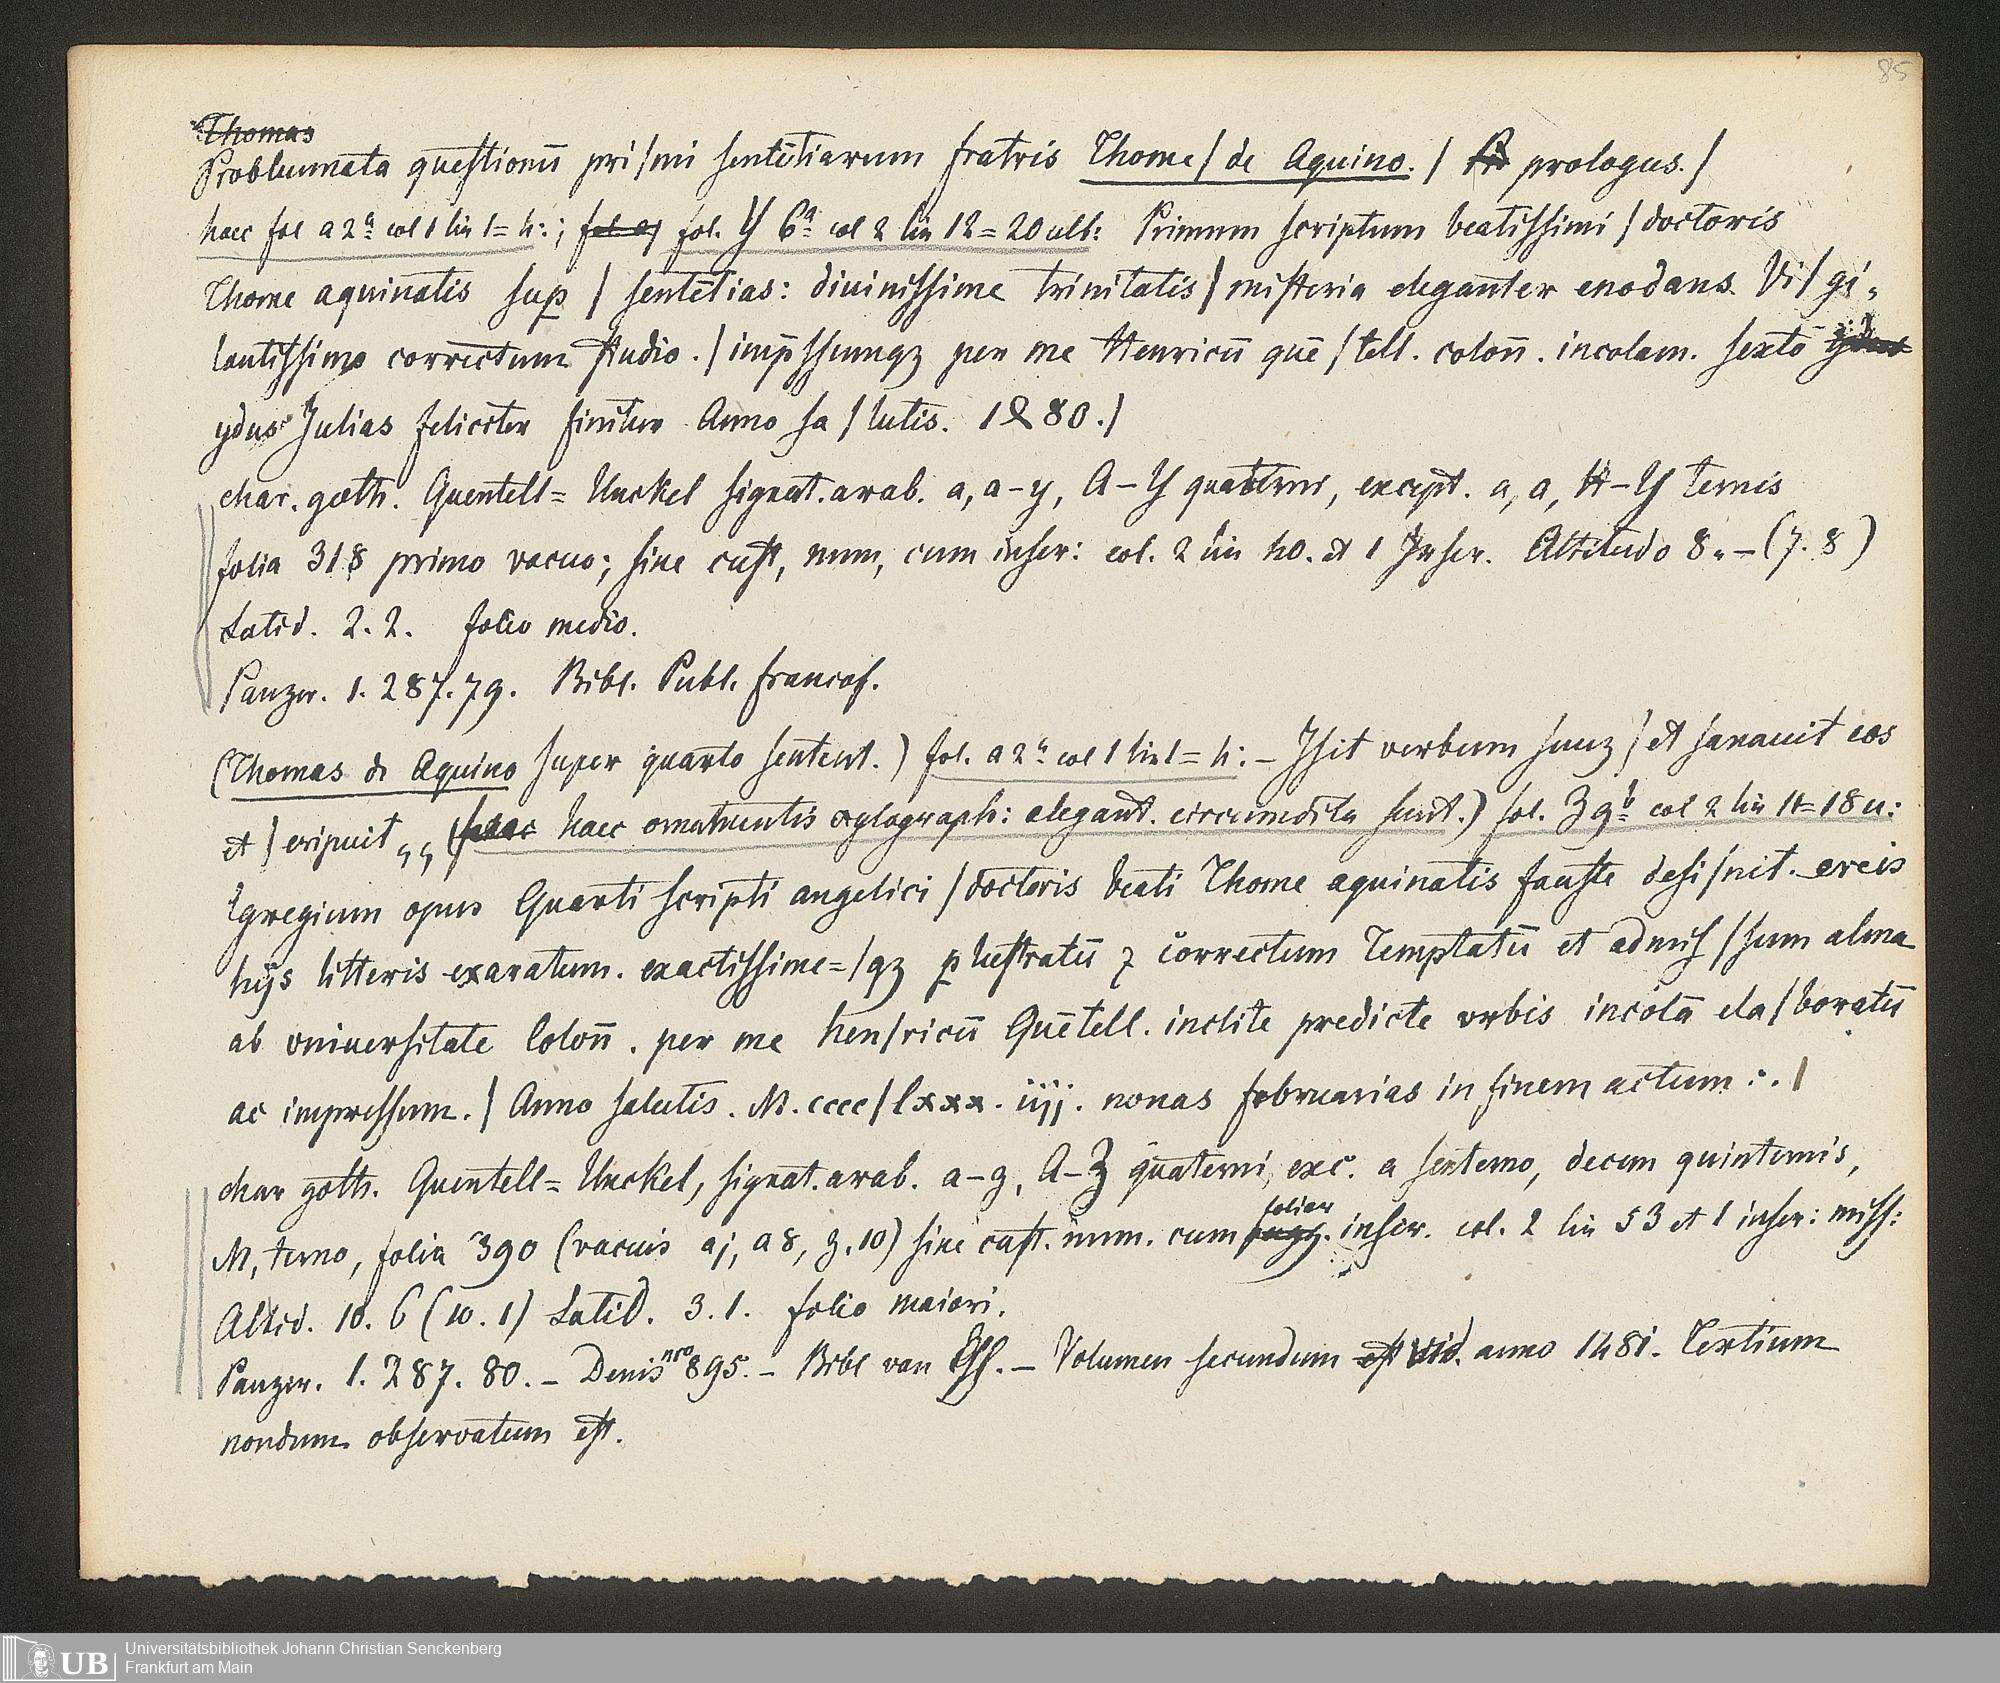 85
Thomas
Probleumata questionū pri/mi sentētiarum fratris Thome / de Aquino. / prologus. /
haec fol a 2ᵃ col 1 lin 1 = h: ; fol. Y 6ᵃ col 2 lin 12 = 20 ult: Primum scriptum beatissimi / doctoris
Thome aquinatis sup / sentētias: diuinissime trinitatis / misteria eleganter enodans. Vi/gi-
lantissimo correctum studio. / imp̄ssumqz per me Henricū quē/tell. colon̄. incolam. sexto
ydus Julias feliciter finitur Anno sa/lutis. 1480. /
char. goth. Quentell = Unckel signat. arab. a, a-y, A-Y quaterni, except. a, a, H-Y ternis
folia 318 primo vacuo; sine cust, num, cum inscr: col. 2 lin 40. et 1 Inscr. Altitudo 8. - (7. 8)
Latid. 2. 2. folio medio.
Panzer. 1. 287. 79. Bibl. Publ. francof.
(Thomas de Aquino super quarto sentent.) fol. a 2ᵃ col 1 lin 1 = h: - Jsit verbum suuz / et sanauit eos
et / eripuit „ (haec ornamentis xylograph: elegant. circumdita sunt.) fol. Z 9ᵇ col 2 lin 14 = 18 u:
Egregium opus Quarti scripti angelici / doctoris beati Thome aquinatis fauste desi/nit. ereis
hijs litteris exaratum. exactissime = / qz p lustratū z correctum Temptatū et admis/sum alma
ab vniuersitate Colon̄. per me hen/ricū Quētell. inclite predicte vrbis incolā ela/boratū
ac impressum. / Anno salutis. M. cccc / lxxx. iijj. nonas februarias in finem actum :. /
char goth. Quentell = Unckel, signat. arab. a-z, A-Z quaterni, exc. a sexterno, decem quinternis,
M, terno, folia 390 (vacuis aj, a8, z, 10) sine cust. num. cum folior inscr. col. 2 lin 53 et 1 inscr: miss:
Altid. 10. 6 (10. 1) Latid. 3. 1. folio maiori.
Panzer. 1. 287. 80. - Denis nro 895. - Bibl van Ess. - Volumen secundum vid. anno 1481. Tertium
nondum observatum est.
UB Universitätsbibliothek Johann Christian Senckenberg
Frankfurt am Main